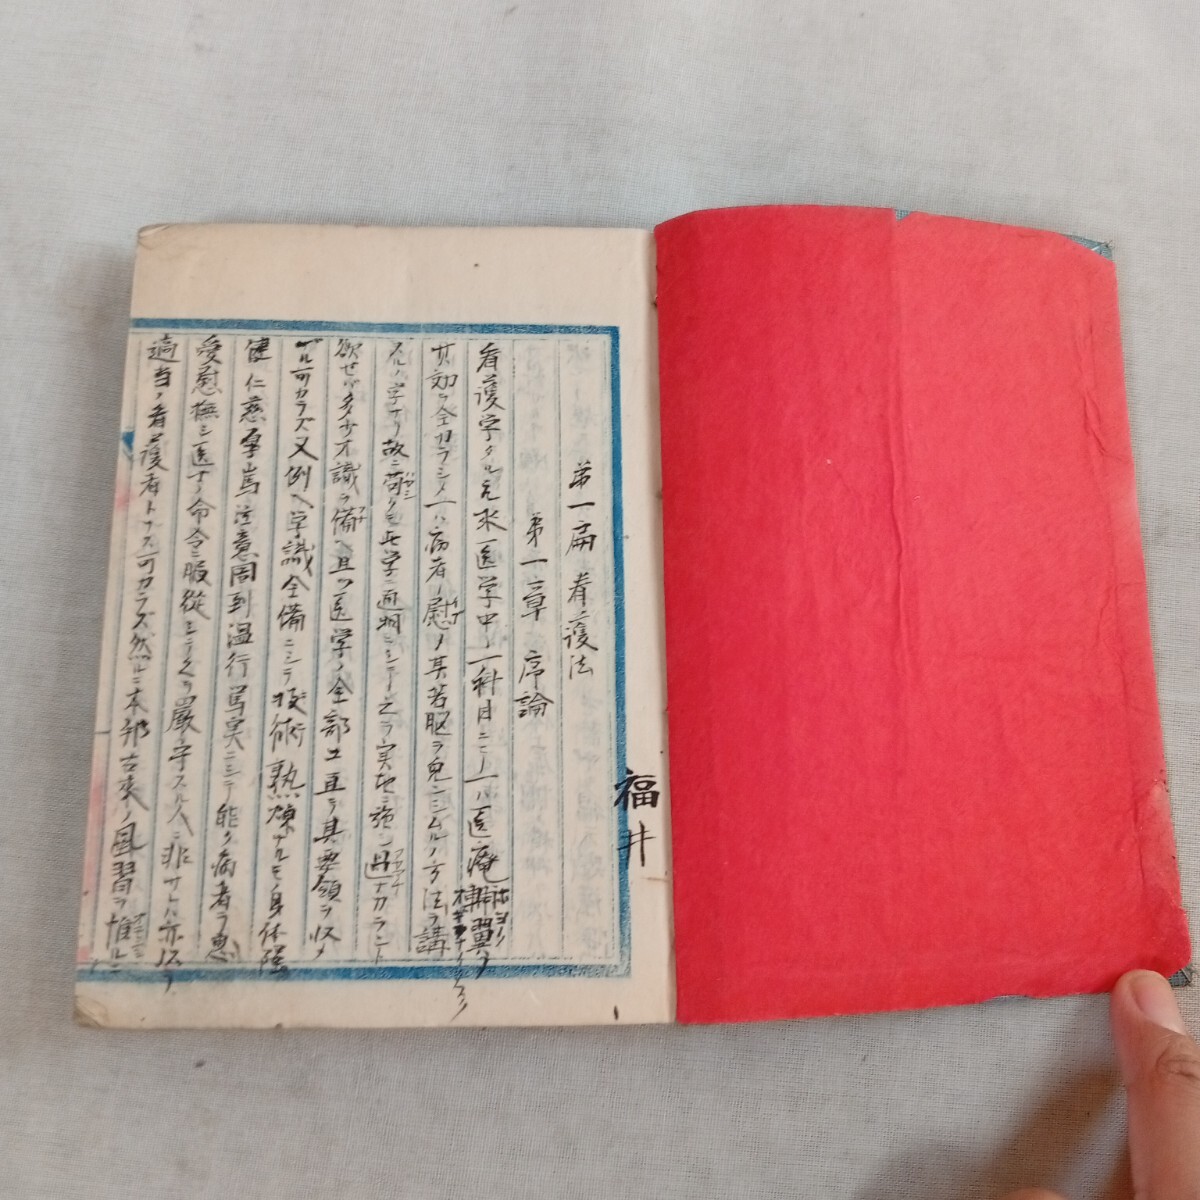 福井
第一扁 看護法
第一章 序論
看護学タル元来医学中ノ一科目ニ〆一ハ医 補翼
其効ヲ全カラシメ一ハ病者ノ慰 其苦脳ヲ免ンシムルノ方法ヲ講
スルノ学ナリ故ニ苟クモ此学ニ通 シ之ヲ実地ニ施シ過ナカラント
欲セバ多少才識ヲ備ヘ且ツ医学ノ全部ヱ亘ラ其要領ヲ収メ
ザル可カラズ又例ヘ学識全備ニシテ技術熟煉ナルモ身体強
健仁慈厚篤注意周到温行篤実ニシテ能ク病者ヲ恵
愛慰撫シ医 ノ命令ニ服従シ ヲ厳守スル人ニ非サレハ亦以テ
適当ノ看護者トナス可カラズ然ルニ本邦古来ノ風習ヲ惟ルニ